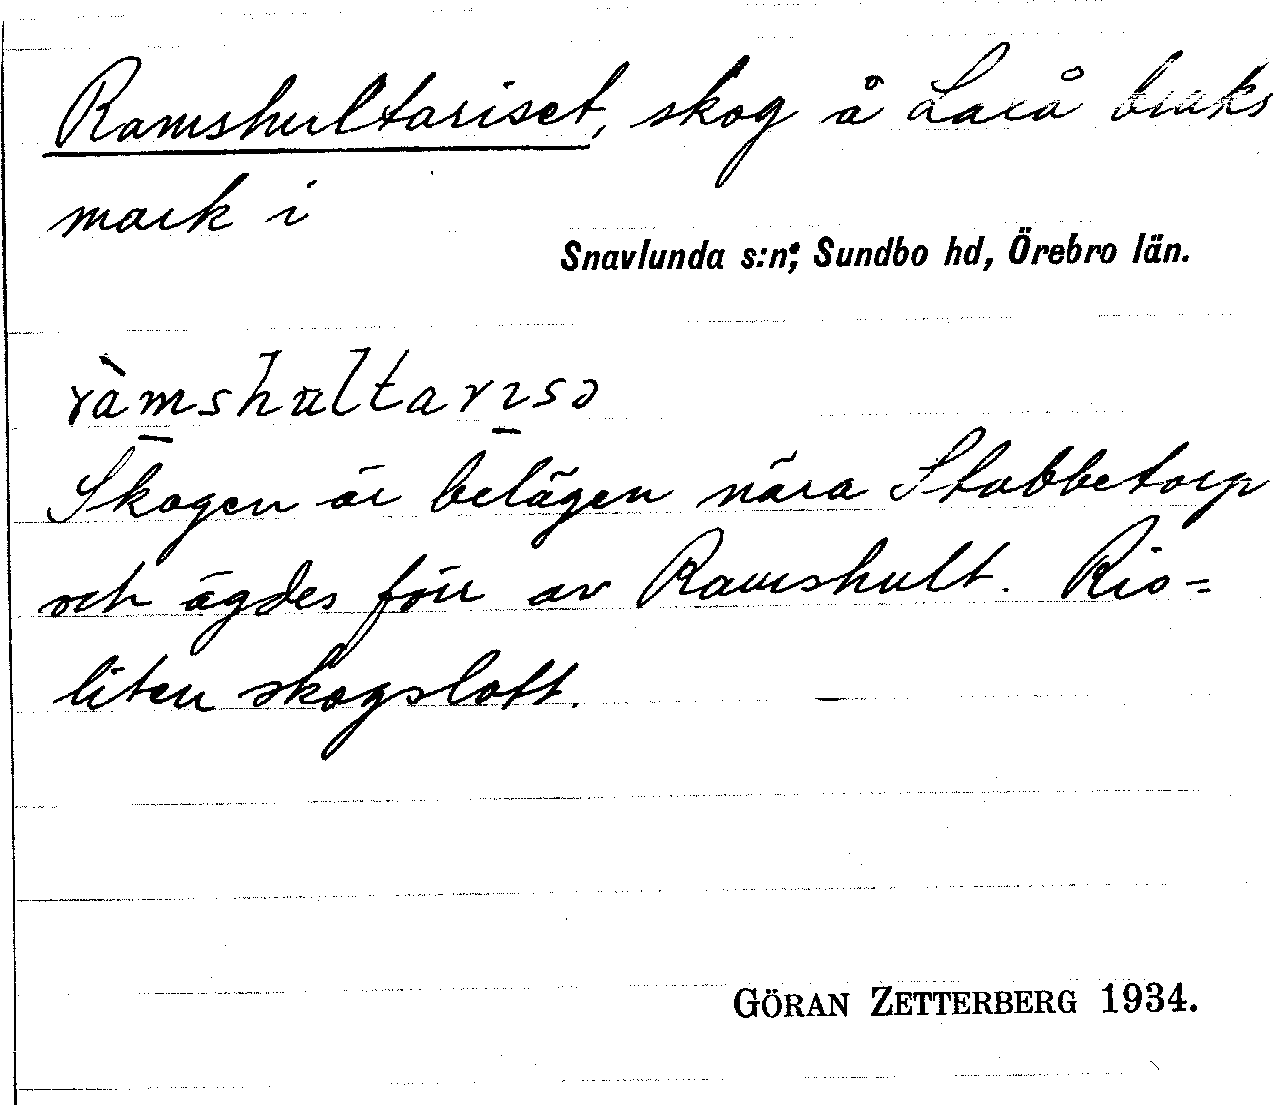 Ramshultariset, skog å Laxå bruks
mark i
Snavlunda s:n, Sundbo hd, Örebro län.
ràmshultarɪsə
Skogen är belägen nära Stubbetorp
och ägdes förr av Ramshult. Ris =
liten skogslott. —
GÖRAN ZETTERBERG 1934.